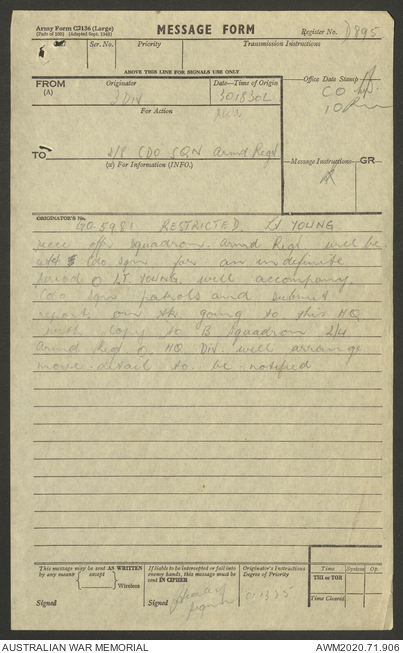 Army Form C2136 (Large)
(Pads of 100) (Adopted Sept. 1940)
MESSAGE FORM
Register No. D895
Ser. No. Priority Transmission Instructions
ABOVE THIS LINE FOR SIGNALS USE ONLY
FROM
(A)
Originator
3 Div
Date—Time of Origin
301830L
Office Date Stamp
CO
For Action
TO
2/8 CDO SQN Armd Regt
(W) For Information (INFO.)
Message Instructions GR
ORIGINATOR'S No.
GO 5981 RESTRICTED. Lt YOUNG
recce offr squadron Armd Regt will be
att Cdo Sqn for an indefinite
period LT. YOUNG will accompany
Cdo sqns patrols and submit
reports on the going to this HQ
with copy to B Squadron 2/4
Armd Regt HQ Div. will arrange
move detail to be notified
This message may be sent AS WRITTEN
by any means except
Wireless
Signed
If liable to be intercepted or fall into
enemy hands, this message must be
sent IN CIPHER
Signed
Originator's Instructions
Degree of Priority
Time System Op.
THI or TOR
Time Cleared
AUSTRALIAN WAR MEMORIAL
AWM2020.71.906